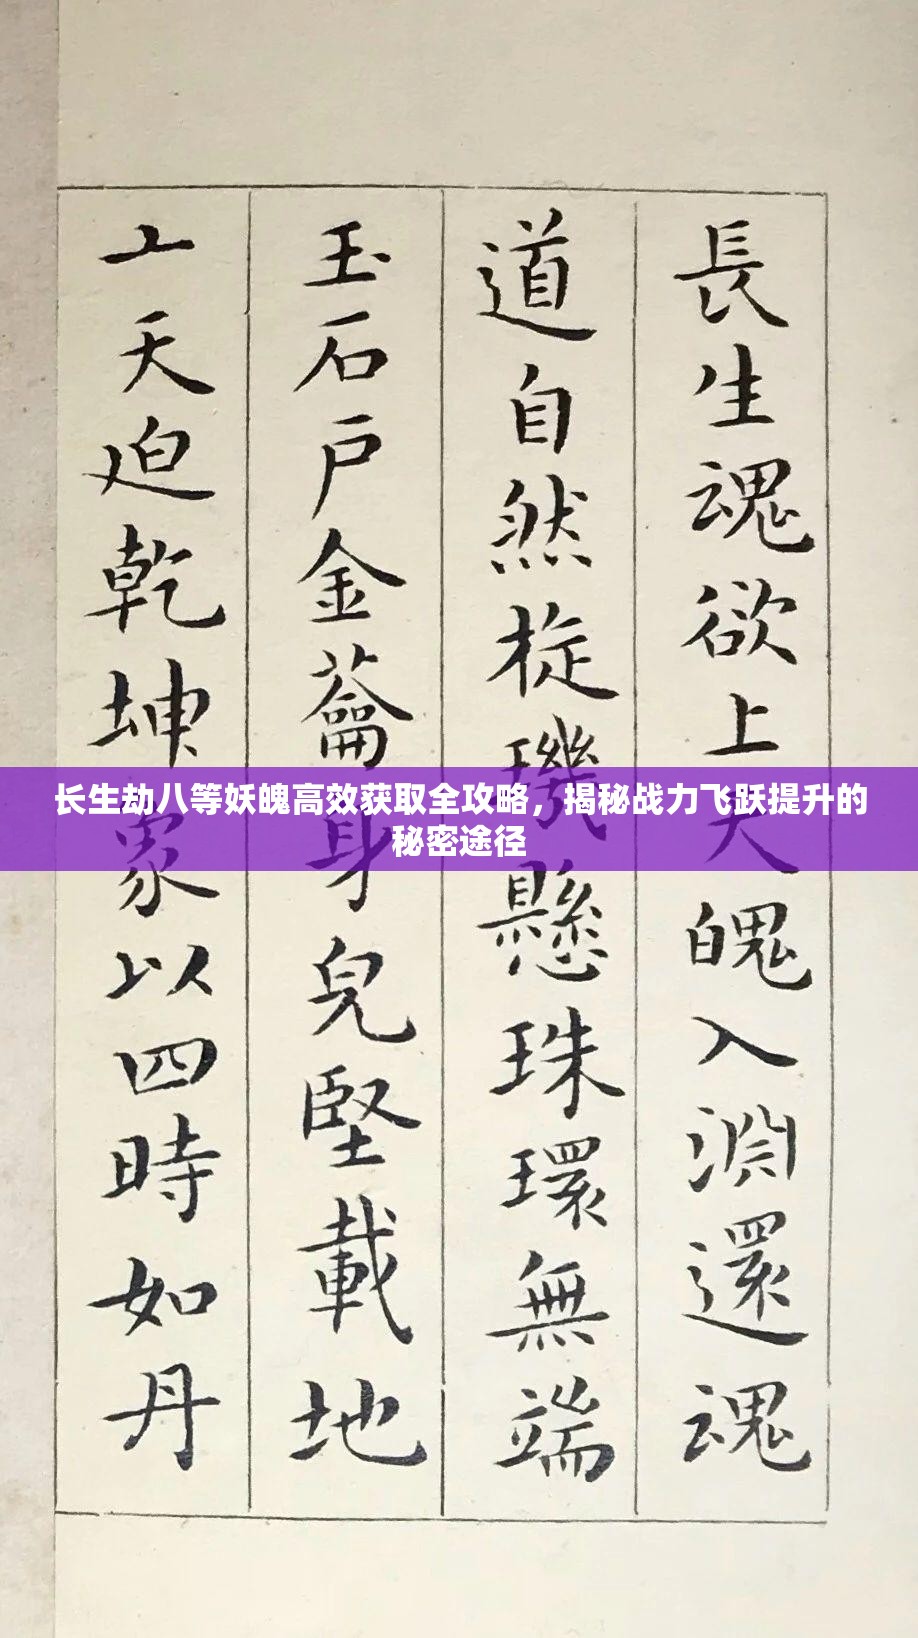 長生魂欲上天魄入淵還魂
道自然旋璣懸珠環無端
玉石戶金蘥身皃堅載地
亠天迫乾坤象以四時如丹
长生劫八等妖魄高效获取全攻略，揭秘战力飞跃提升的
秘密途径